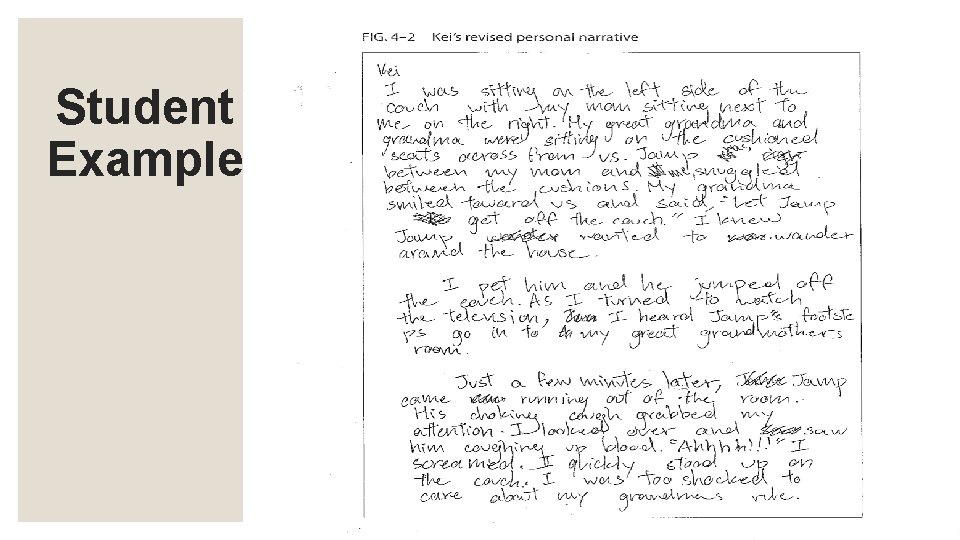 Student
Example
FIG. 4–2 Kei's revised personal narrative
Kei
I was sitting on the left side of the
couch with my mom sitting next to
me on the right. My great grandma and
grandma were sitting on the cushioned
seats across from us. Jamp was
between my mom and me, snuggled
between the cushions. My grandma
smiled toward us and said, "Let Jamp
get off the couch." I knew
Jamp wanted to wander
around the house.
I pet him and he jumped off
the couch. As I turned to watch
the television, I heard Jamp's footste
ps go in to my great grandmother's
room.
Just a few minutes later, Jamp
came running out of the room.
His choking cough grabbed my
attention. I looked over and saw
him coughing up blood. "Ahhhh!!!" I
screamed. I quickly stood up on
the couch. I was too shocked to
care about my grandmas rule.